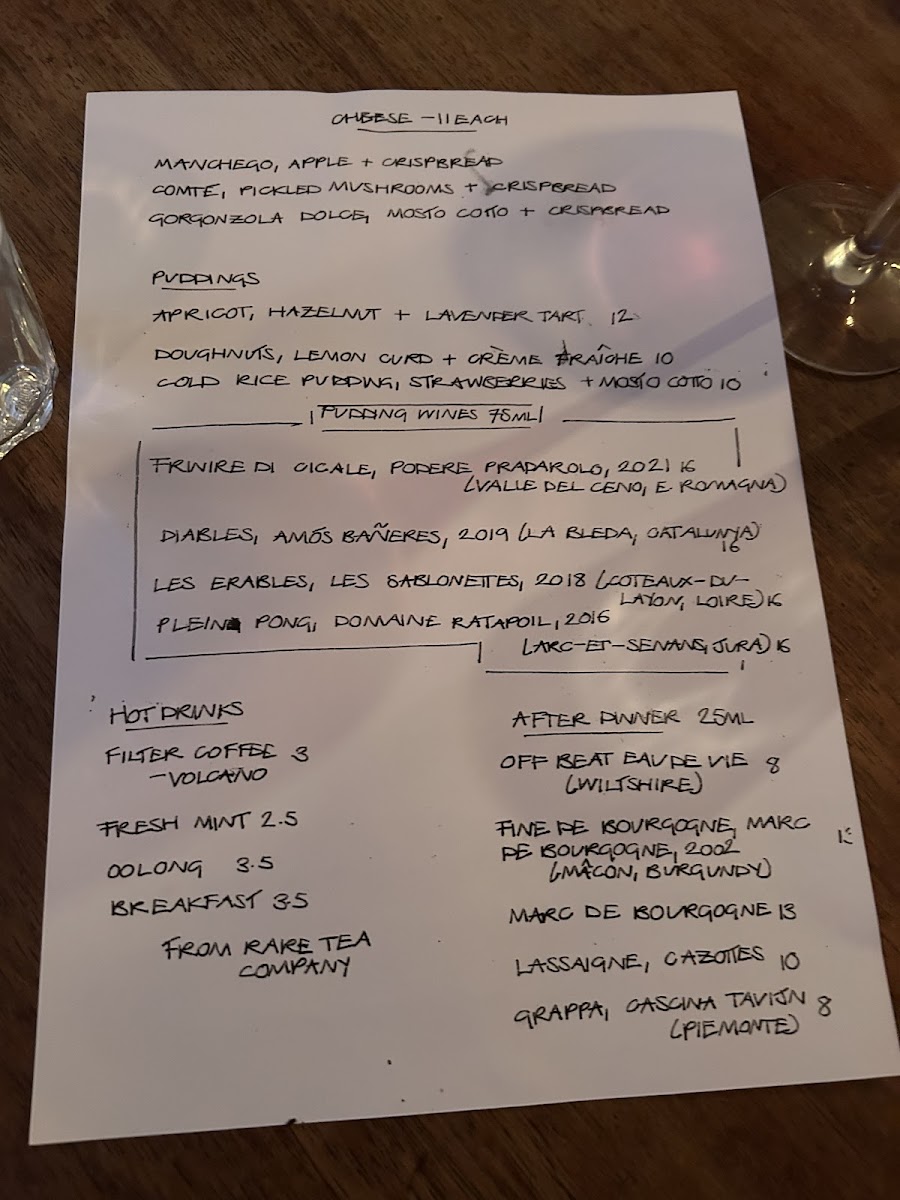 CHEESE - 11 EACH
MANCHEGO, APPLE + CRISPBREAD
COMTÉ, PICKLED MUSHROOMS + CRISPBREAD
GORGONZOLA DOLCE, MOSTO COTTO + CRISPBREAD
PUDDINGS
APRICOT, HAZELNUT + LAVENDER TART. 12
DOUGHNUTS, LEMON CURD + CRÈME FRAÎCHE 10
COLD RICE PUDDING, STRAWBERRIES + MOSTO COTTO 10
PUDDING WINES 75ML
DI CICALE, PODERE PRADAROLO, 2021 16
(VALLE DEL CENO, E. ROMAGNA)
DIABLES, AMÓS BAÑERES, 2019 (LA BLEDA, CATALUNYA)
16
LES ERABLES, LES SABLONETTES, 2018 (COTEAUX-DU-
LAYON, LOIRE) 16
PLEIN PONG, DOMAINE RATAPOIL, 2016
(ARC-ET-SENANS, JURA) 16
HOT DRINKS
FILTER COFFEE 3
- VOLCANO
FRESH MINT 2.5
OOLONG 3.5
BREAKFAST 3.5
FROM RARE TEA
COMPANY
AFTER DINNER 25ML
OFF BEAT EAU DE VIE 8
(WILTSHIRE)
FINE DE BOURGOGNE, MARC
DE BOURGOGNE, 2002
(MÂCON, BURGUNDY)
MARC DE BOURGOGNE 13
LASSAIGNE, CAZOTTES 10
GRAPPA, CASCINA TAVIJN 8
(PIEMONTE)